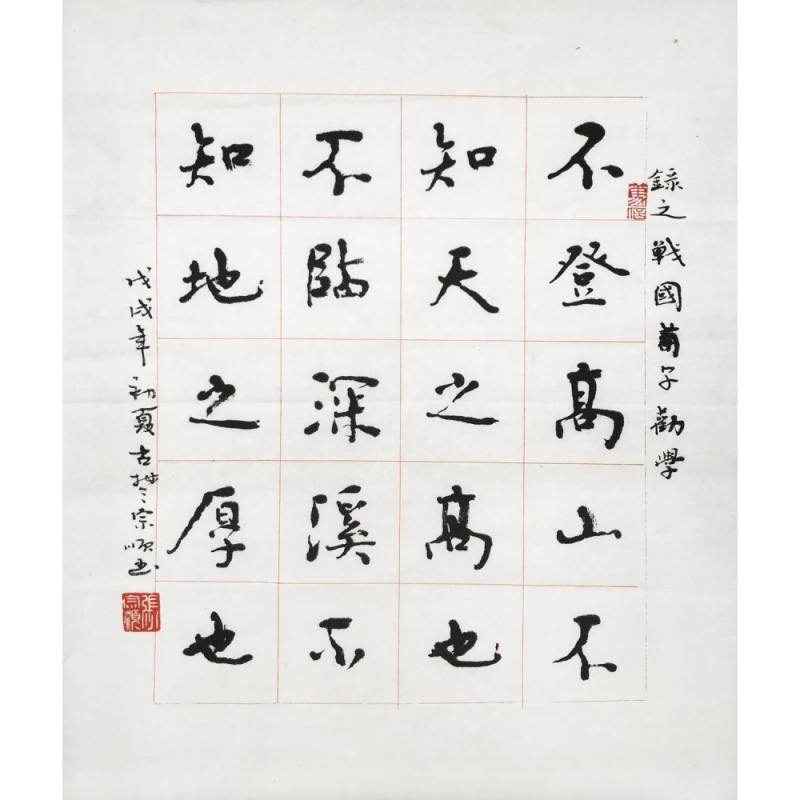 錄之戰國荀子勸學
不登高山不
知天之高也
不臨深溪不
知地之厚也
戊戌年初夏古楚宗順書
張宗順